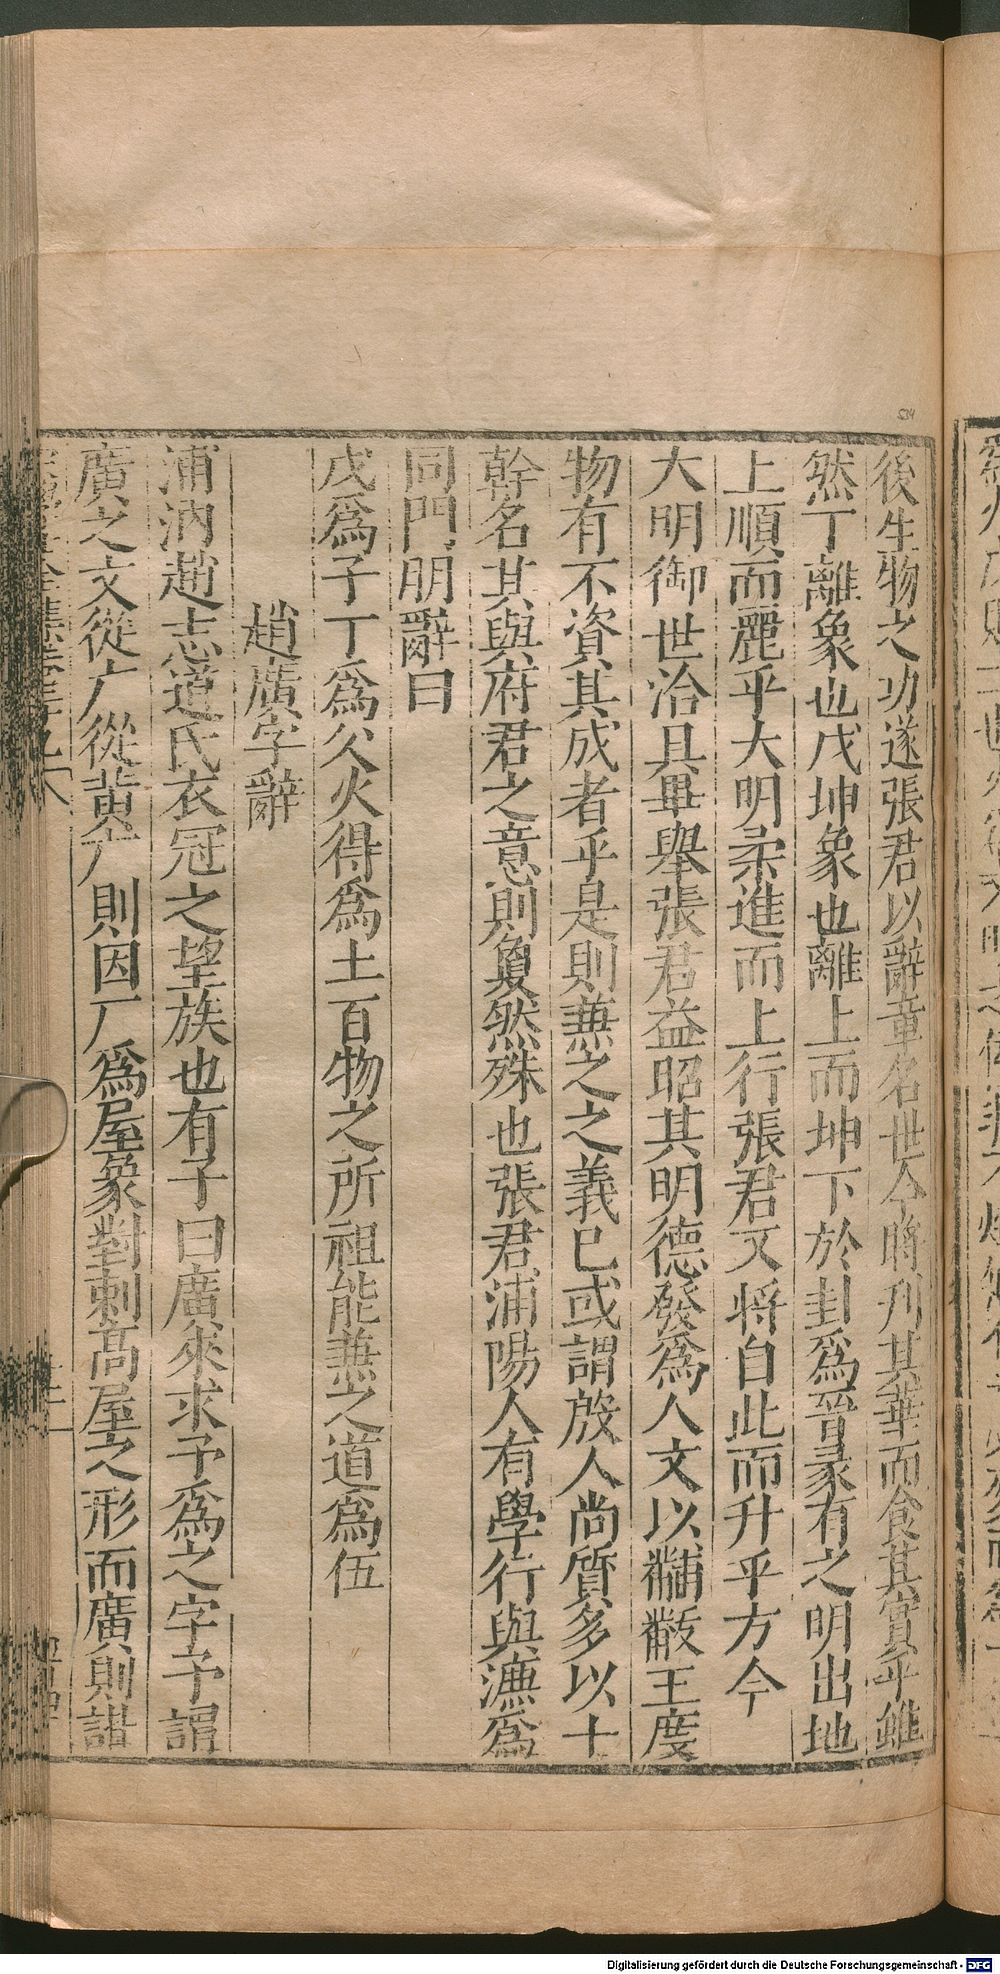 後生物之功遂張君以辭章名世今將刋其華而食其實乎雖
然丁離象也戊坤象也離上而坤下於卦爲晉彖有之明出地
上順而麗乎大明柔進而上行張君又將自此而升乎方今
大明御世治具畢舉張君益昭其明德發爲人文以黼黻王度
物有不資其成者乎是則兼之之義已或謂殷人尚質多以十
幹名其與府君之意則夐然殊也張君浦陽人有學行與濂爲
同門朋辭曰
戊爲子丁爲父火得爲土百物之所祖能兼之道爲伍
趙廣字辭
浦汭趙志道氏衣冠之望族也有子曰廣來求予爲之字予謂
廣之文從广從黄广則因厂爲屋象對剌高屋之形而廣則詁
534
Digitalisierung gefördert durch die Deutsche Forschungsgemeinschaft - DFG